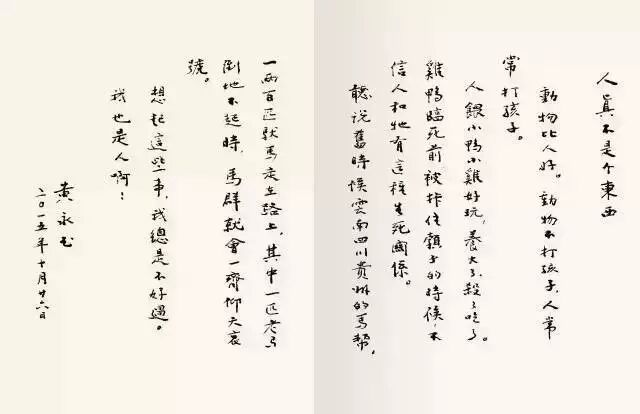 人眞不是个東西
動物比人好。動物不打孩子,人常
常打孩子。
人餵小鴨小雞好玩,養大了殺了吃了。
雞鴨臨死前被拤住頸子的時候,不
信人和牠有這種生死關係。
聽说舊時候雲南四川貴州的馬幫,
一兩百匹馱馬走在路上,其中一匹老马
倒地不起時,馬群就會一齊仰天哀
號。
想起這些事,我總是不好過。
我也是人啊!
黄永玉
二〇一五年十月廿六日